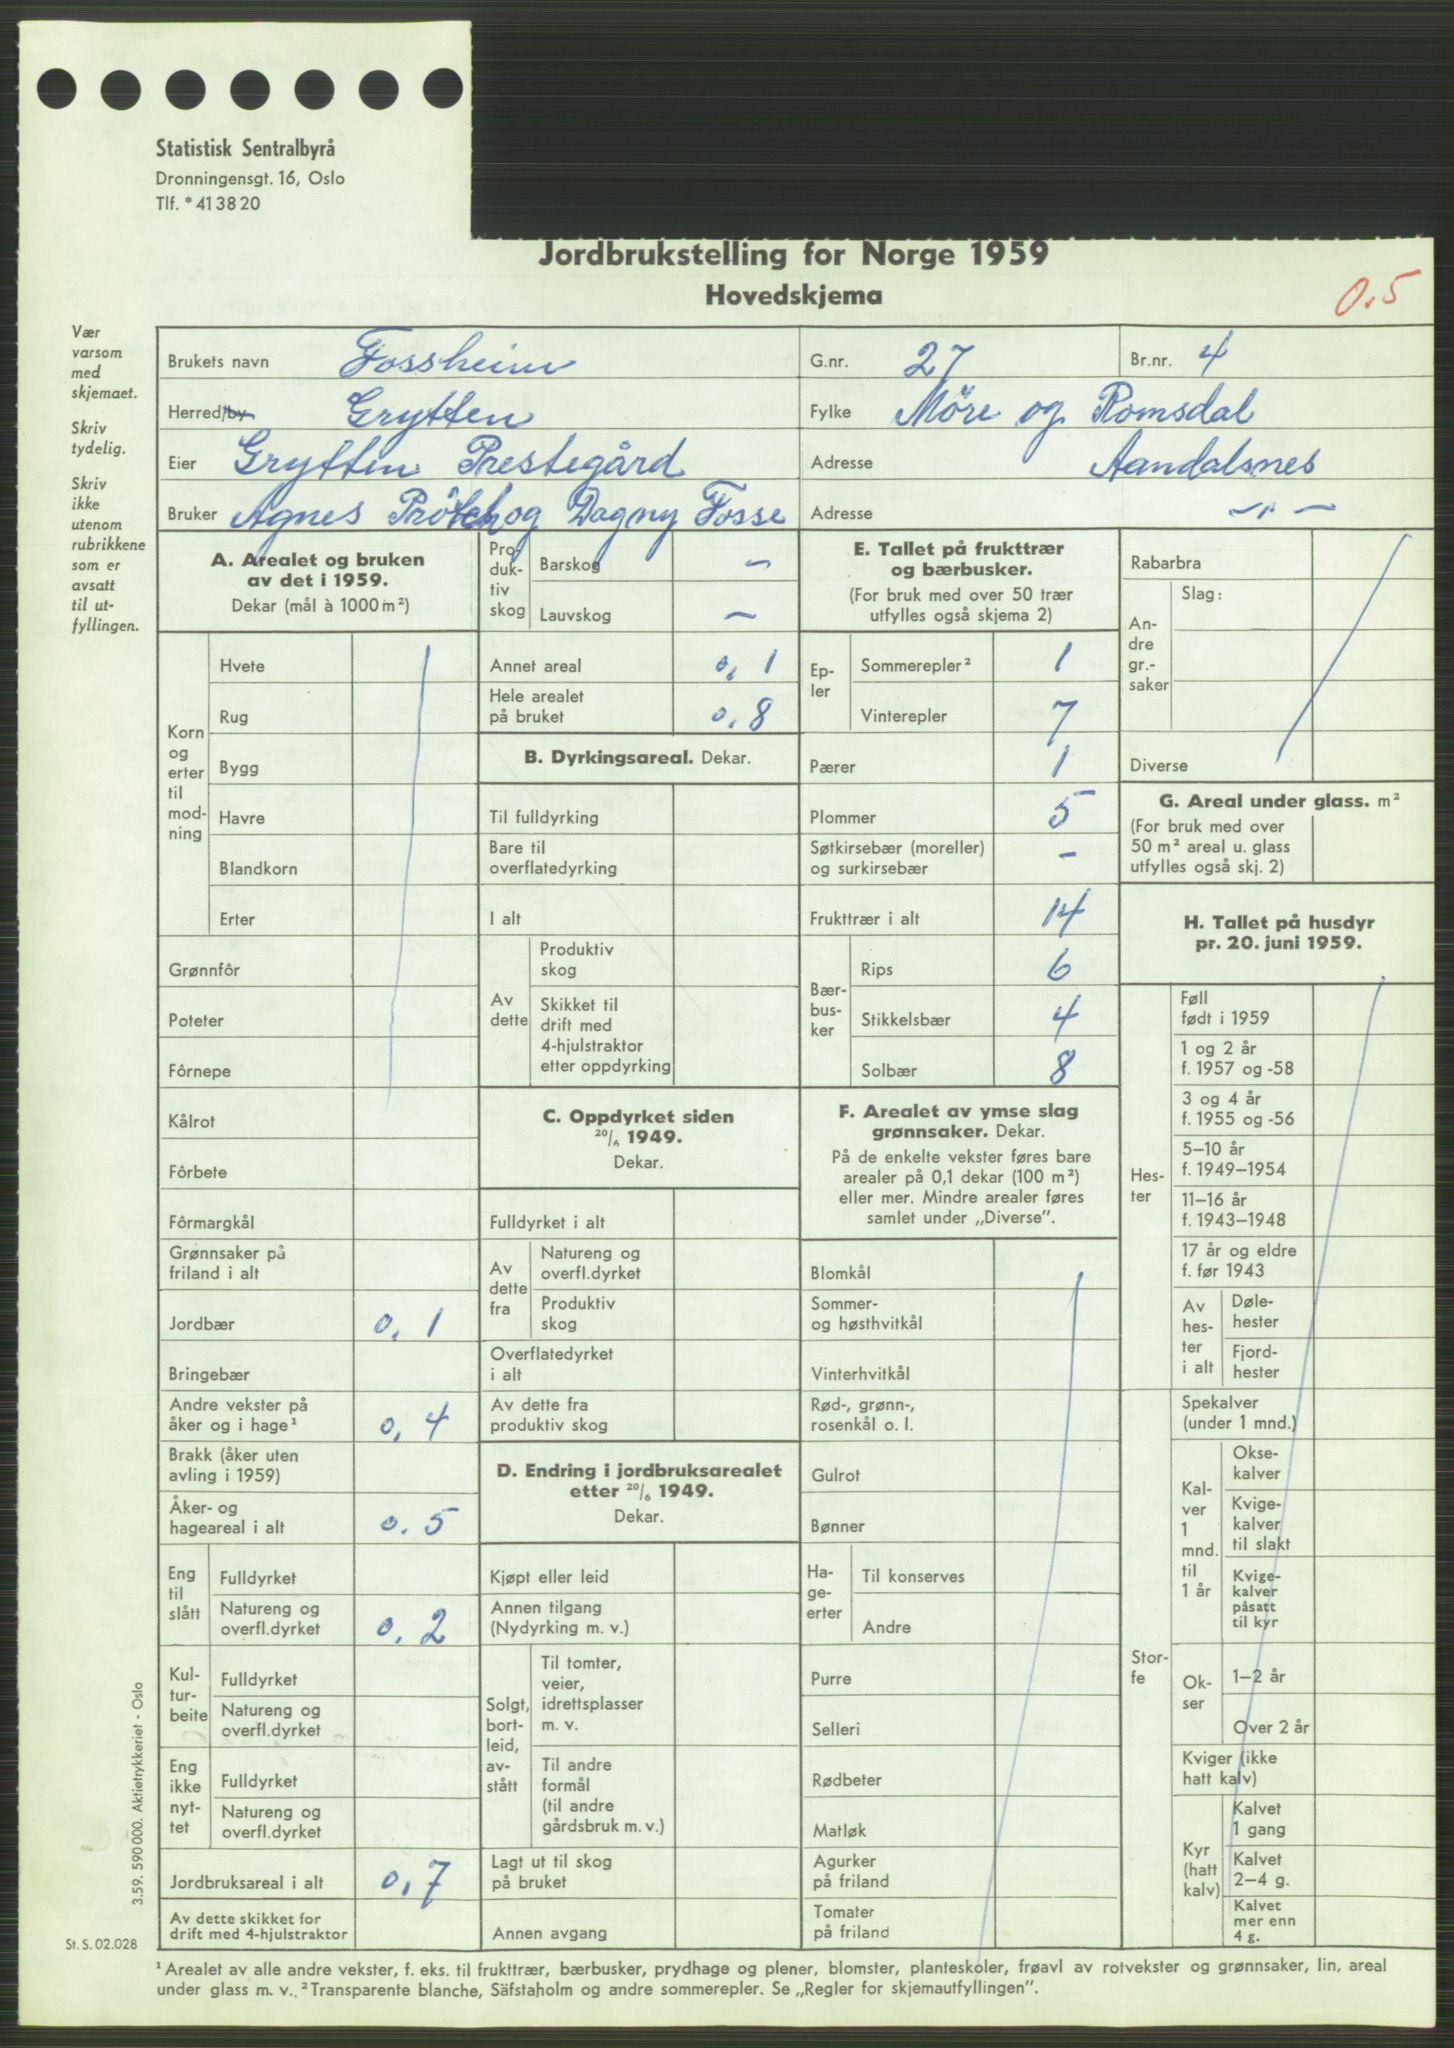 Statistisk Sentralbyrå
Dronningensgt. 16, Oslo
Tlf. * 41 38 20
Jordbrukstelling for Norge 1959
Hovedskjema
0.5
Vær
varsom
med
skjemaet.
Skriv
tydelig.
Skriv
ikke
utenom
rubrikkene
som er
avsatt
til ut-
fyllingen.
Brukets navn Fossheim G.nr. 27 Br.nr. 4
Herred/by Grytten Fylke Möre og Romsdal
Eier Grytten Prestegård Adresse Aandalsnes
Bruker Agnes og Dagny Fosse Adresse —„—
A. Arealet og bruken
av det i 1959.
Dekar (mål à 1000 m²)
Korn
og
erter
til
mod-
ning
Hvete
Rug
Bygg
Havre
Blandkorn
Erter
Grønnfôr
Poteter
Fôrnepe
Kålrot
Fôrbete
Fôrmargkål
Grønnsaker på
friland i alt
Jordbær 0,1
Bringebær
Andre vekster på
åker og i hage¹ 0,4
Brakk (åker uten
avling i 1959)
Åker- og
hageareal i alt 0.5
Eng
til
slått
Fulldyrket
Natureng og
overfl.dyrket 0.2
Kul-
tur-
beite
Fulldyrket
Natureng og
overfl.dyrket
Eng
ikke
nyt-
tet
Fulldyrket
Natureng og
overfl.dyrket
Jordbruksareal i alt 0,7
Av dette skikket for
drift med 4-hjulstraktor
Pro-
duk-
tiv
skog
Barskog –
Lauvskog –
Annet areal 0,1
Hele arealet
på bruket 0,8
B. Dyrkingsareal. Dekar.
Til fulldyrking
Bare til
overflatedyrking
I alt
Av
dette
Produktiv
skog
Skikket til
drift med
4-hjulstraktor
etter oppdyrking
C. Oppdyrket siden
20/6 1949.
Dekar.
Fulldyrket i alt
Av
dette
fra
Natureng og
overfl.dyrket
Produktiv
skog
Overflatedyrket
i alt
Av dette fra
produktiv skog
D. Endring i jordbruksarealet
etter 20/6 1949.
Dekar.
Kjøpt eller leid
Annen tilgang
(Nydyrking m. v.)
Solgt,
bort-
leid,
av-
stått
Til tomter,
veier,
idrettsplasser
m. v.
Til andre
formål
(til andre
gårdsbruk m. v.)
Lagt ut til skog
på bruket
Annen avgang
E. Tallet på frukttrær
og bærbusker.
(For bruk med over 50 trær
utfylles også skjema 2)
Ep-
ler
Sommerepler² 1
Vinterepler 7
Pærer 1
Plommer 5
Søtkirsebær (moreller)
og surkirsebær –
Frukttrær i alt 14
Bær-
bus-
ker
Rips 6
Stikkelsbær 4
Solbær 8
F. Arealet av ymse slag
grønnsaker. Dekar.
På de enkelte vekster føres bare
arealer på 0,1 dekar (100 m²)
eller mer. Mindre arealer føres
samlet under „Diverse".
Blomkål
Sommer-
og høsthvitkål
Vinterhvitkål
Rød-, grønn-,
rosenkål o. l.
Gulrot
Bønner
Ha-
ge-
erter
Til konserves
Andre
Purre
Selleri
Rødbeter
Matløk
Agurker
på friland
Tomater
på friland
Rabarbra
An-
dre
gr.-
saker
Slag:
Diverse
G. Areal under glass. m²
(For bruk med over
50 m² areal u. glass
utfylles også skj. 2)
H. Tallet på husdyr
pr. 20. juni 1959.
Hes-
ter
Føll
født i 1959
1 og 2 år
f. 1957 og -58
3 og 4 år
f. 1955 og -56
5–10 år
f. 1949–1954
11–16 år
f. 1943–1948
17 år og eldre
f. før 1943
Av
hes-
ter
i alt
Døle-
hester
Fjord-
hester
Stor-
fe
Spekalver
(under 1 mnd.)
Kal-
ver
1
mnd.
til
1 år
Okse-
kalver
Kvige-
kalver
til slakt
Kvige-
kalver
påsatt
til kyr
Ok-
ser
1–2 år
Over 2 år
Kviger (ikke
hatt kalv)
Kyr
(hatt
kalv)
Kalvet
1 gang
Kalvet
2–4 g.
Kalvet
mer enn
4 g.
3.59. 590 000. Aktietrykkeriet - Oslo
St. S. 02.028
¹ Arealet av alle andre vekster, f. eks. til frukttrær, bærbusker, prydhage og plener, blomster, planteskoler, frøavl av rotvekster og grønnsaker, lin, areal
under glass m. v.. ² Transparente blanche, Säfstaholm og andre sommerepler. Se „Regler for skjemautfyllingen".